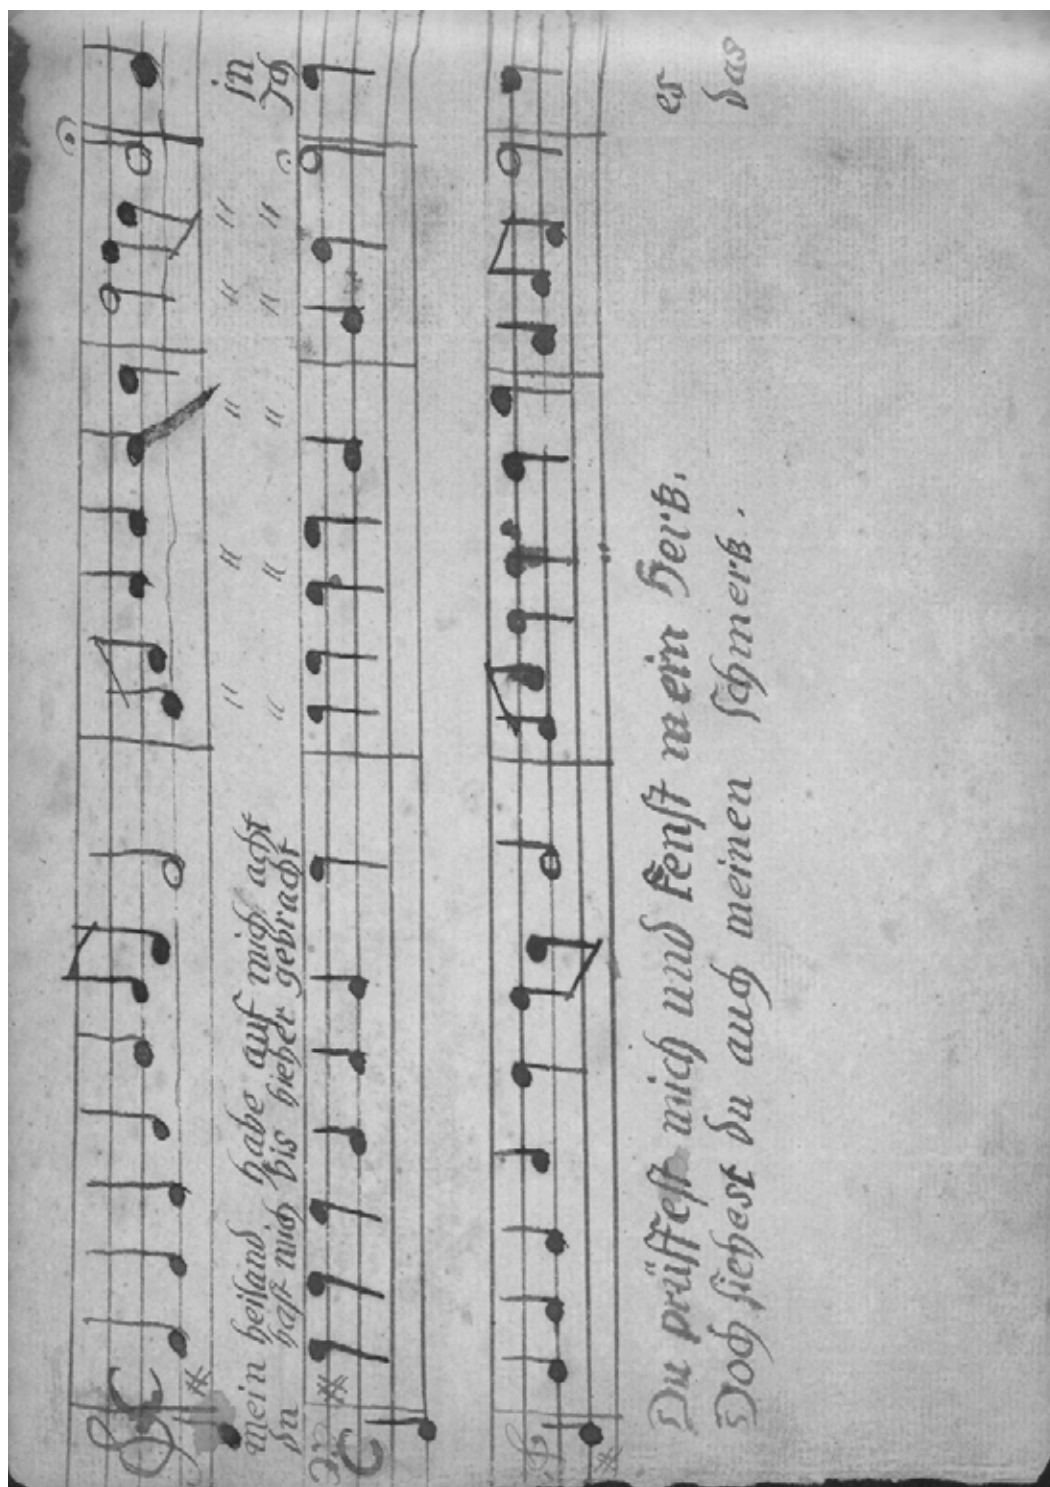 mein heiland habe auf mich acht " " " " " in
du hast mich bis hieher gebracht " " " " " Ich
Du prüffest mich und kenst mein Hertz. es
Doch siehest du auch meinen schmertz. das